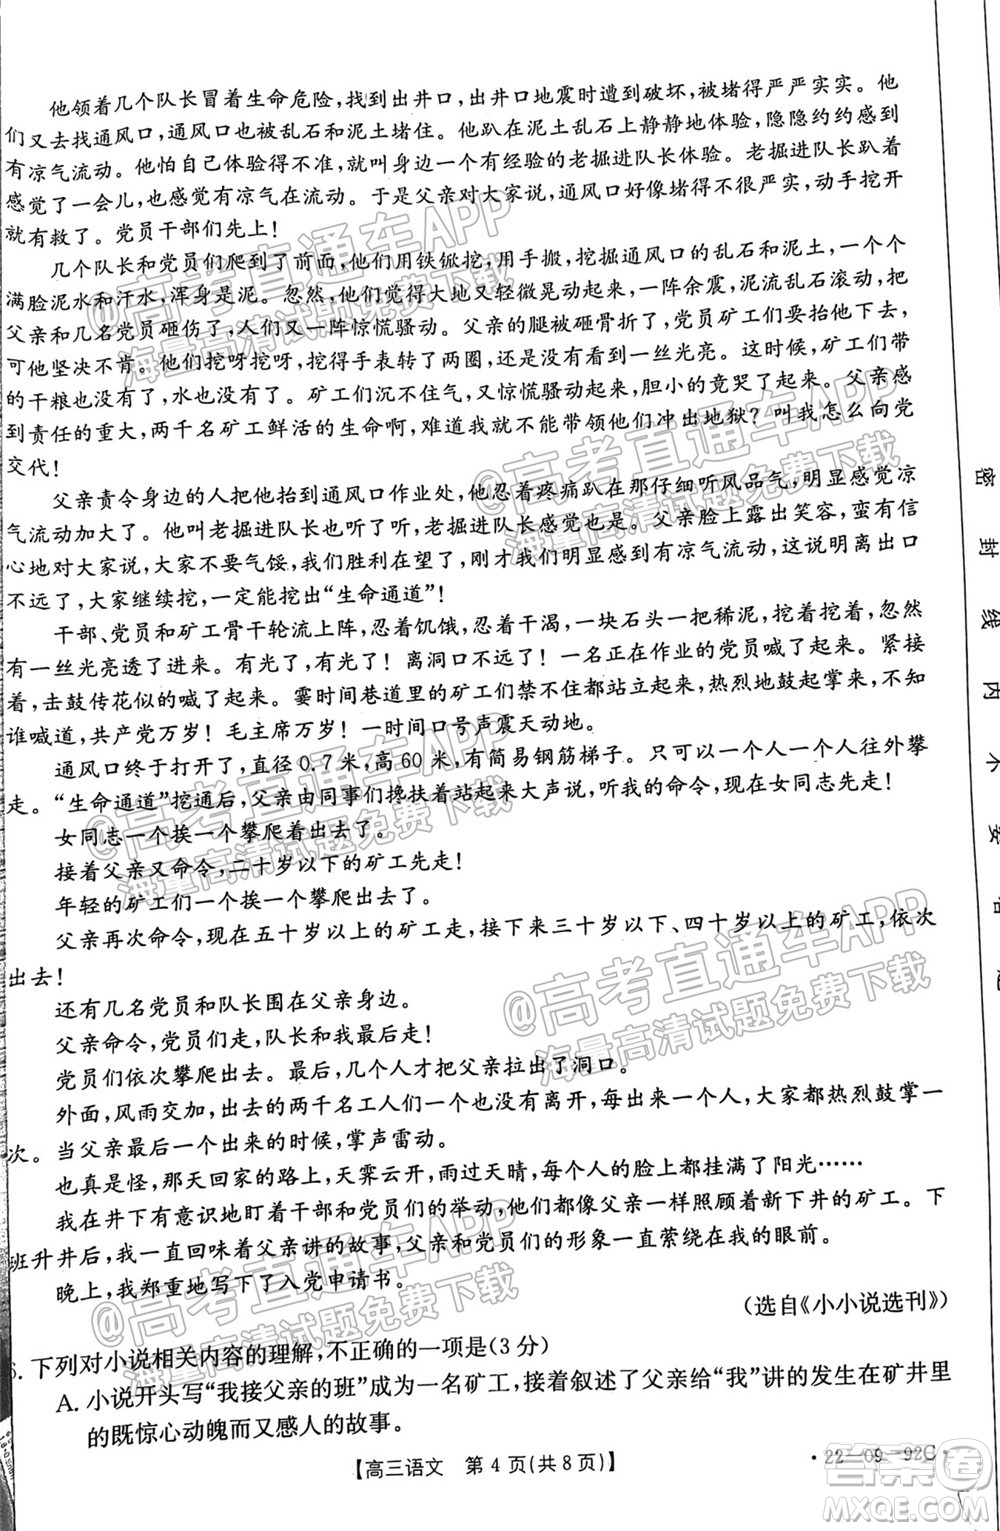 他领着几个队长冒着生命危险，找到出井口，出井口地震时遭到破坏，被堵得严严实实。他
们又去找通风口，通风口也被乱石和泥土堵住。他趴在泥土乱石上静静地体验，隐隐约约感觉
有凉气流动。他怕自己体验得不准，就叫身边一个有经验的老掘进队长体验。老掘进队长趴着
感觉了一会儿，也感觉有凉气在流动。于是父亲对大家说，通风口好像堵得不严实，动手挖开
就有救了。党员干部们先上！
几个队长和党员们爬到了前面，他们用铁锨挖，用手搬，挖掘通风口的乱石和泥土，一个个
满脸泥水和汗水，浑身是泥。忽然，他们觉得大地又轻微晃动起来，一阵余震，泥流乱石滚动，把
父亲和几名党员砸伤了，人们又一阵惊慌骚动。父亲的腿被砸骨折了，党员矿工们想抬他过去，
可他坚决不肯。他们挖呀挖呀，挖得手表转了两圈，还是没有看到一丝光亮。这时候，矿工们带
的干粮也没有了，水也没有了。矿工们沉不住气，又惊慌骚动起来，胆小的竟哭了起来。父亲感
到责任的重大，两千名矿工鲜活的生命啊，难道我就不能带领他们冲出地狱？叫我怎么向党
交代！
父亲责令身边的人把他抬到通风口作业处，忍着疼痛趴在那仔细听风品气，明显感觉凉
气流动加大了。他叫老掘进队长也听了听，老掘进队长感觉也是。父亲脸上露出笑容，蛮有信
心地对大家说，大家不要气馁，我们胜利在望了，刚才我们明显感觉到有凉气流动，说明离出口
不远了，大家继续挖，一定能挖出“生命通道”！
干部、党员和矿工骨干轮流上阵，忍着饥饿，忍着干渴，一块石头一把稀泥，挖着挖着，忽然
有一丝光亮透了进来。有光了，有光了！离洞口不远了！一名正在作业的党员喊了起来。紧接
着，击鼓传花似的喊了起来。霎时间巷道里的矿工们禁不住都站立起来，热烈鼓掌起来，不知
谁喊道，共产党万岁！毛主席万岁！一时间口号声震天动地。
通风口终于打开了，直径0.7米，高60米，有简易钢筋梯子。只可以一个人一个人往外攀
走。“生命通道”挖通后，父亲由同事们搀扶着站起来大声说，我命令，现在女同志先走！
女同志一个挨一个攀爬着出去了。
接着父亲又命令，二十岁以下的矿工先走！
年轻的矿工们一个挨一个攀爬出去了。
父亲再次命令，现在五十岁以上的矿工走，接下来三十岁以下、四十岁以上的矿工，依次
出去！
还有几名党员和队长围在父亲身边。
父亲命令，党员们走，队长和我最后走！
党员们依次攀爬出去。最后，几个人才把父亲拉出了洞口。
外面，风雨交加，出去的两千名工人们并没有离开，每出来一个人，大家都热烈鼓掌一
次。当父亲最后一个出来的时候，掌声雷动。
也真是怪，矿工们在回家的路上，天霁云开，雨过天晴，每个人的脸上都挂满了阳光……
我在井下有意识地盯着干部和党员们看，他们都像父亲一样照顾着新下井的矿工。下
班升井后，我一直回味着父亲讲的故事，父亲和党员们的形象一直萦绕在我的眼前。
晚上，我郑重地写下了入党申请书。
（选自《小小说选刊》）
6. 下列对小说相关内容的理解，不正确的一项是（3分）
A. 小说开头写“我接父亲的班”成为一名矿工，接着叙述了父亲给“我”讲的发生在矿井里
的既惊心动魄而又感人的故事。
【高三语文 第4页（共8页）】
·22－09－92C·
密 封 线 内 不 要 答 题
@高考直通车APP
海量高清试题免费下载
@高考直通车APP
海量高清试题免费下载
@高考直通车APP
海量高清试题免费下载
@高考直通车APP
海量高清试题免费下载
@高考直通车APP
海量高清试题免费下载
答案圈
MXQE.COM